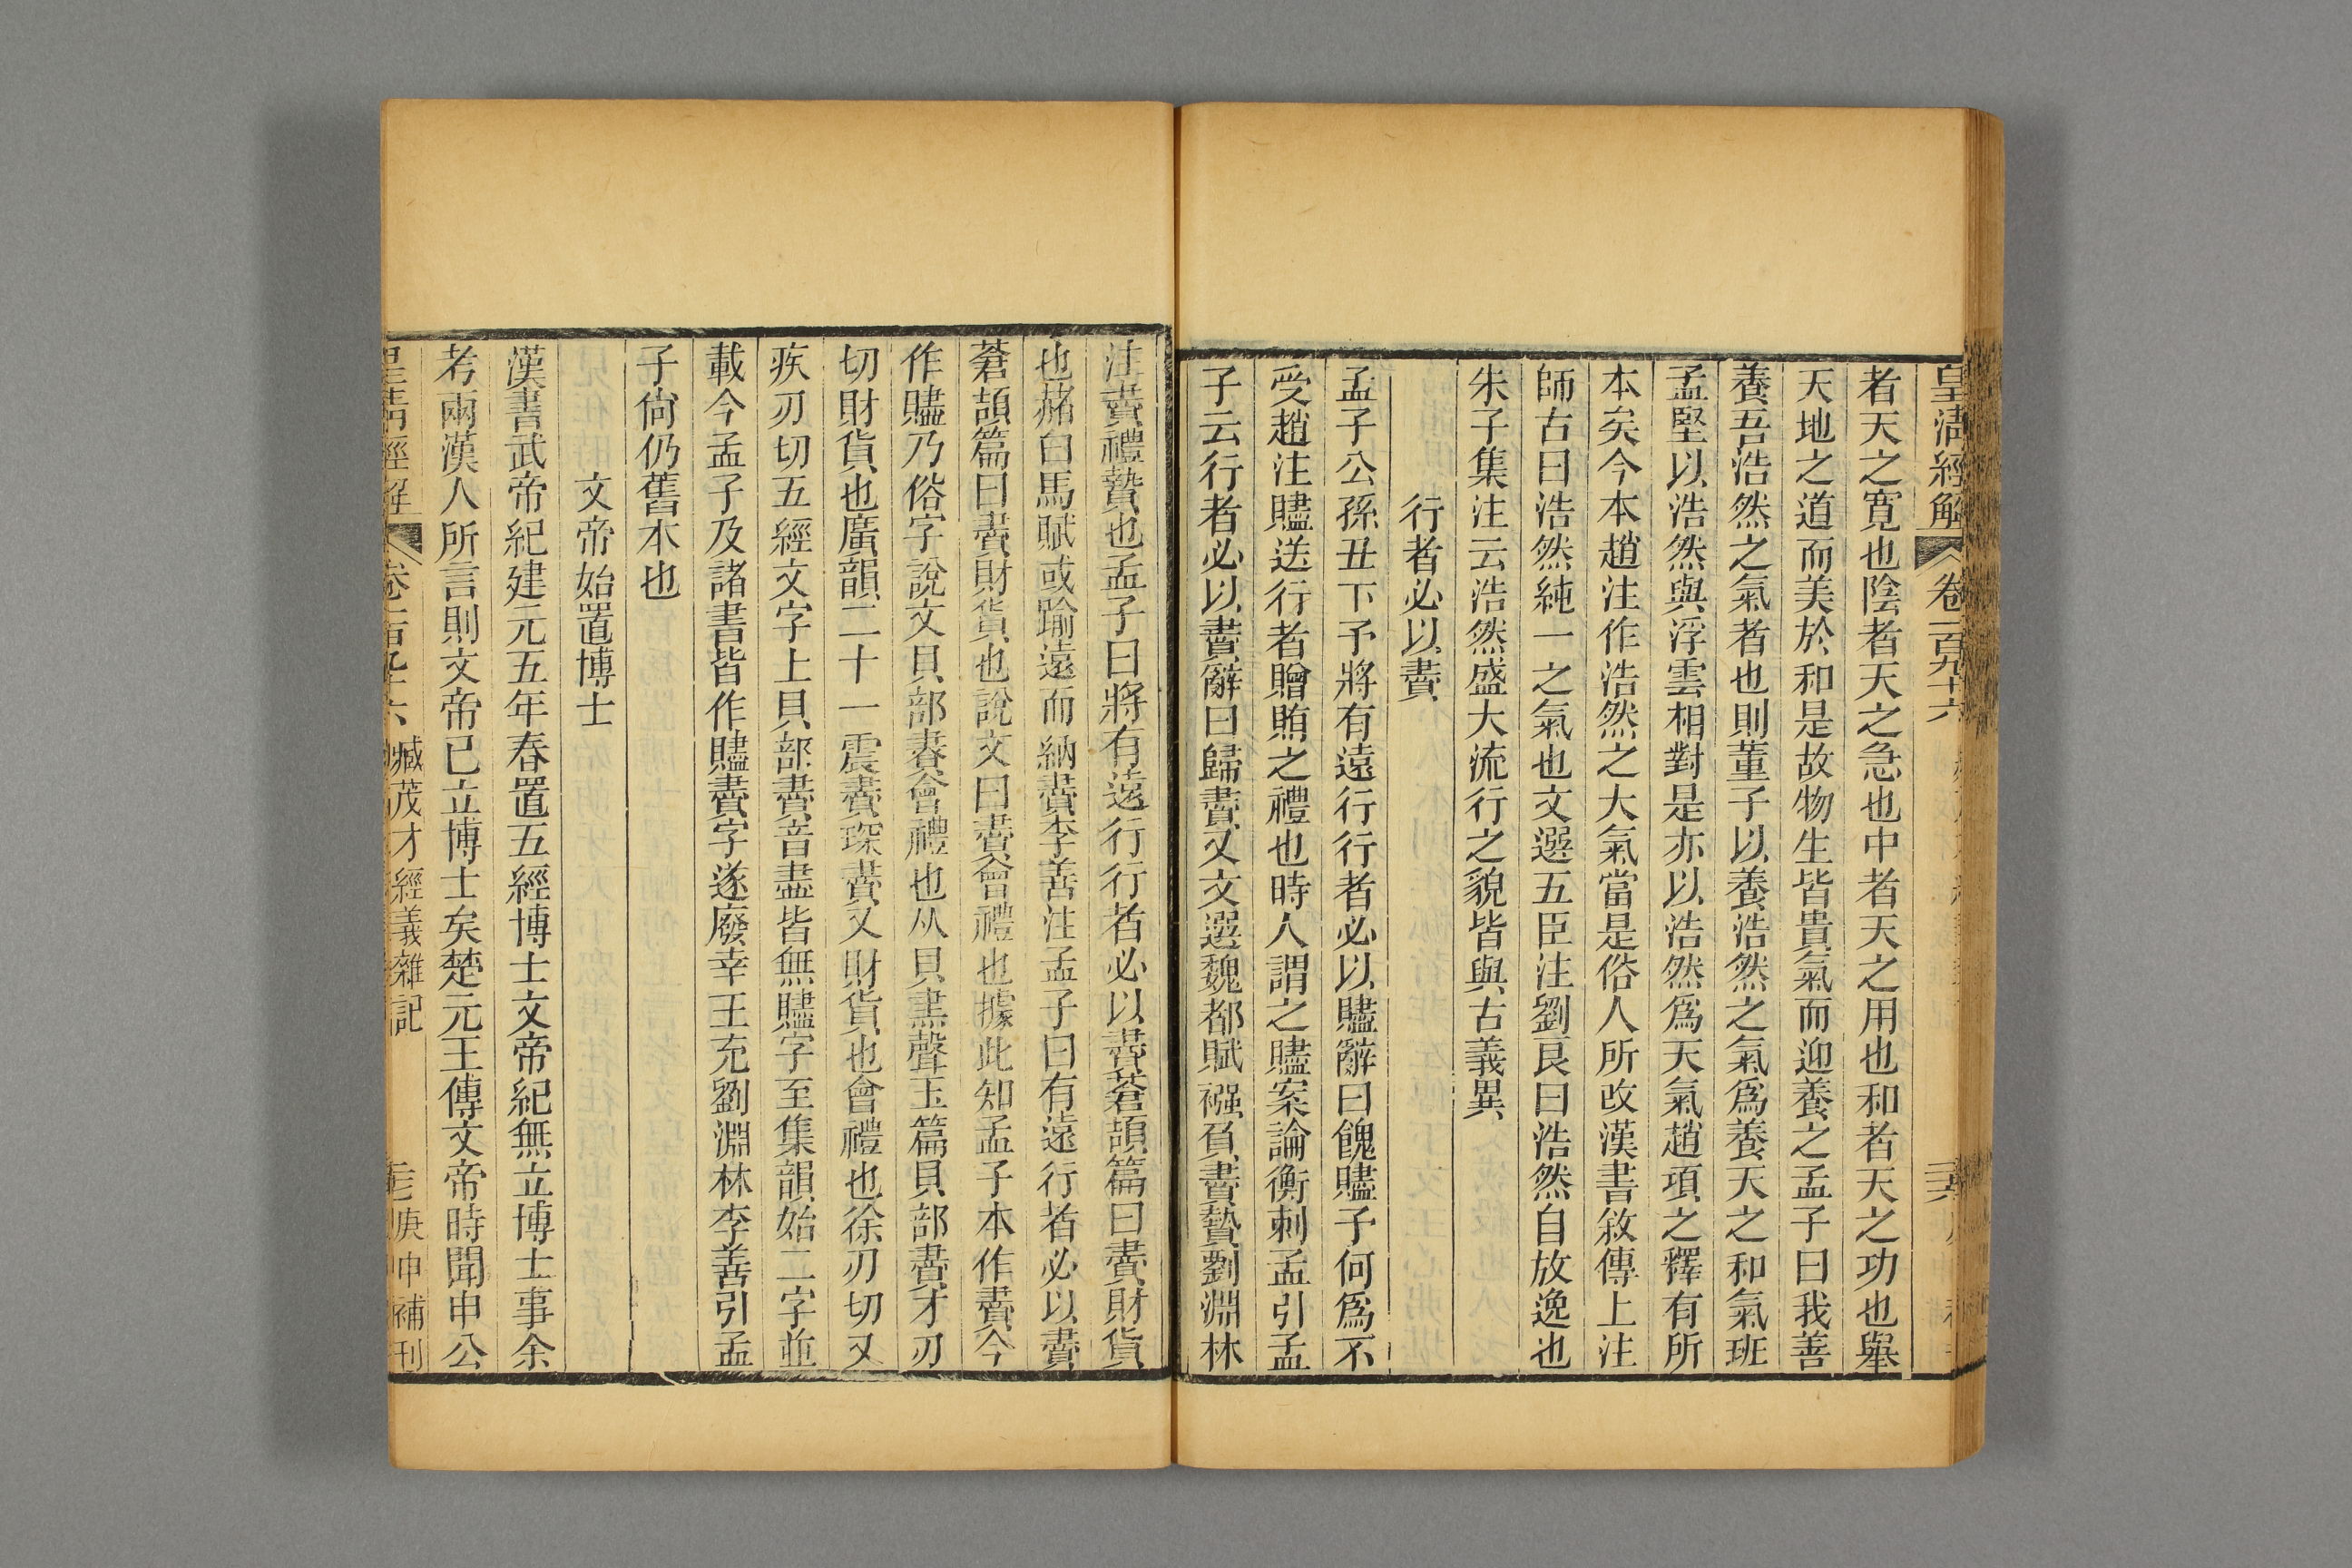 皇清經解 卷一百九十六
者天之寬也陰者天之急也中者天之用也和者天之功也舉
天地之道而美於和是故物生皆貴氣而迎養之孟子曰我善
養吾浩然之氣者也則董子以養浩然之氣爲養天之和氣班
孟堅以浩然與浮雲相對是亦以浩然爲天氣趙項之釋有所
本矣今本趙注作浩然之大氣當是俗人所改漢書敘傳上注
師古曰浩然純一之氣也文選五臣注劉良曰浩然自放逸也
朱子集注云浩然盛大流行之貌皆與古義異
行者必以賮
孟子公孫丑下予將有遠行行者必以贐辭曰餽贐予何爲不
受趙注贐送行者贈賄之禮也時人謂之贐案論衡刺孟引孟
子云行者必以賮辭曰歸賮又文選魏都賦襁負賮贄劉淵林
注賮禮贄也孟子曰將有遠行行者必以賮蒼頡篇曰賮財貨
也赭白馬賦或踰遠而納賮李善注孟子曰有遠行者必以賮
蒼頡篇曰賮財貨也說文曰賮會禮也據此知孟子本作賮今
作贐乃俗字說文貝部賮會禮也从貝㶳聲玉篇貝部賮才刃
切財貨也廣韻二十一震賮琛賮又財貨也會禮也徐刃切又
疾刃切五經文字上貝部賮音盡皆無贐字至集韻始二字並
載今孟子及諸書皆作贐賮字遂廢幸王充劉淵林李善引孟
子尙仍舊本也
文帝始置博士
漢書武帝紀建元五年春置五經博士文帝紀無立博士事余
考兩漢人所言則文帝已立博士矣楚元王傳文帝時聞申公
皇淸經解 卷一百九十六 臧茂才經義雜記 庚申補刊